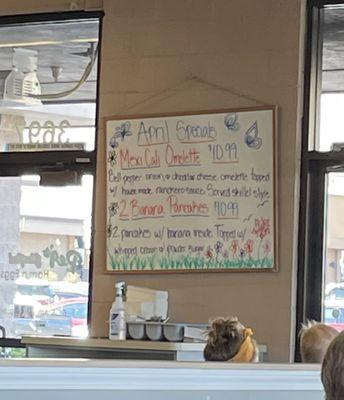 April Specials
Mexi Cali Omelette $10.99
Bell pepper, onion & cheddar cheese omelette topped
w/ house made ranchero sauce Served skillet style
2 Banana Pancakes $10.99
2 pancakes w/ banana inside Topped w/
whipped cream & powder sugar
369
Ham n Eggs